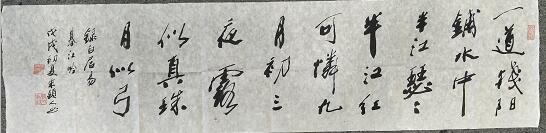 一道残阳
铺水中
半江瑟〻
半江红
可怜九
月初三
夜露
似真珠
月似弓
录白居易
暮江吟
戊戌初夏